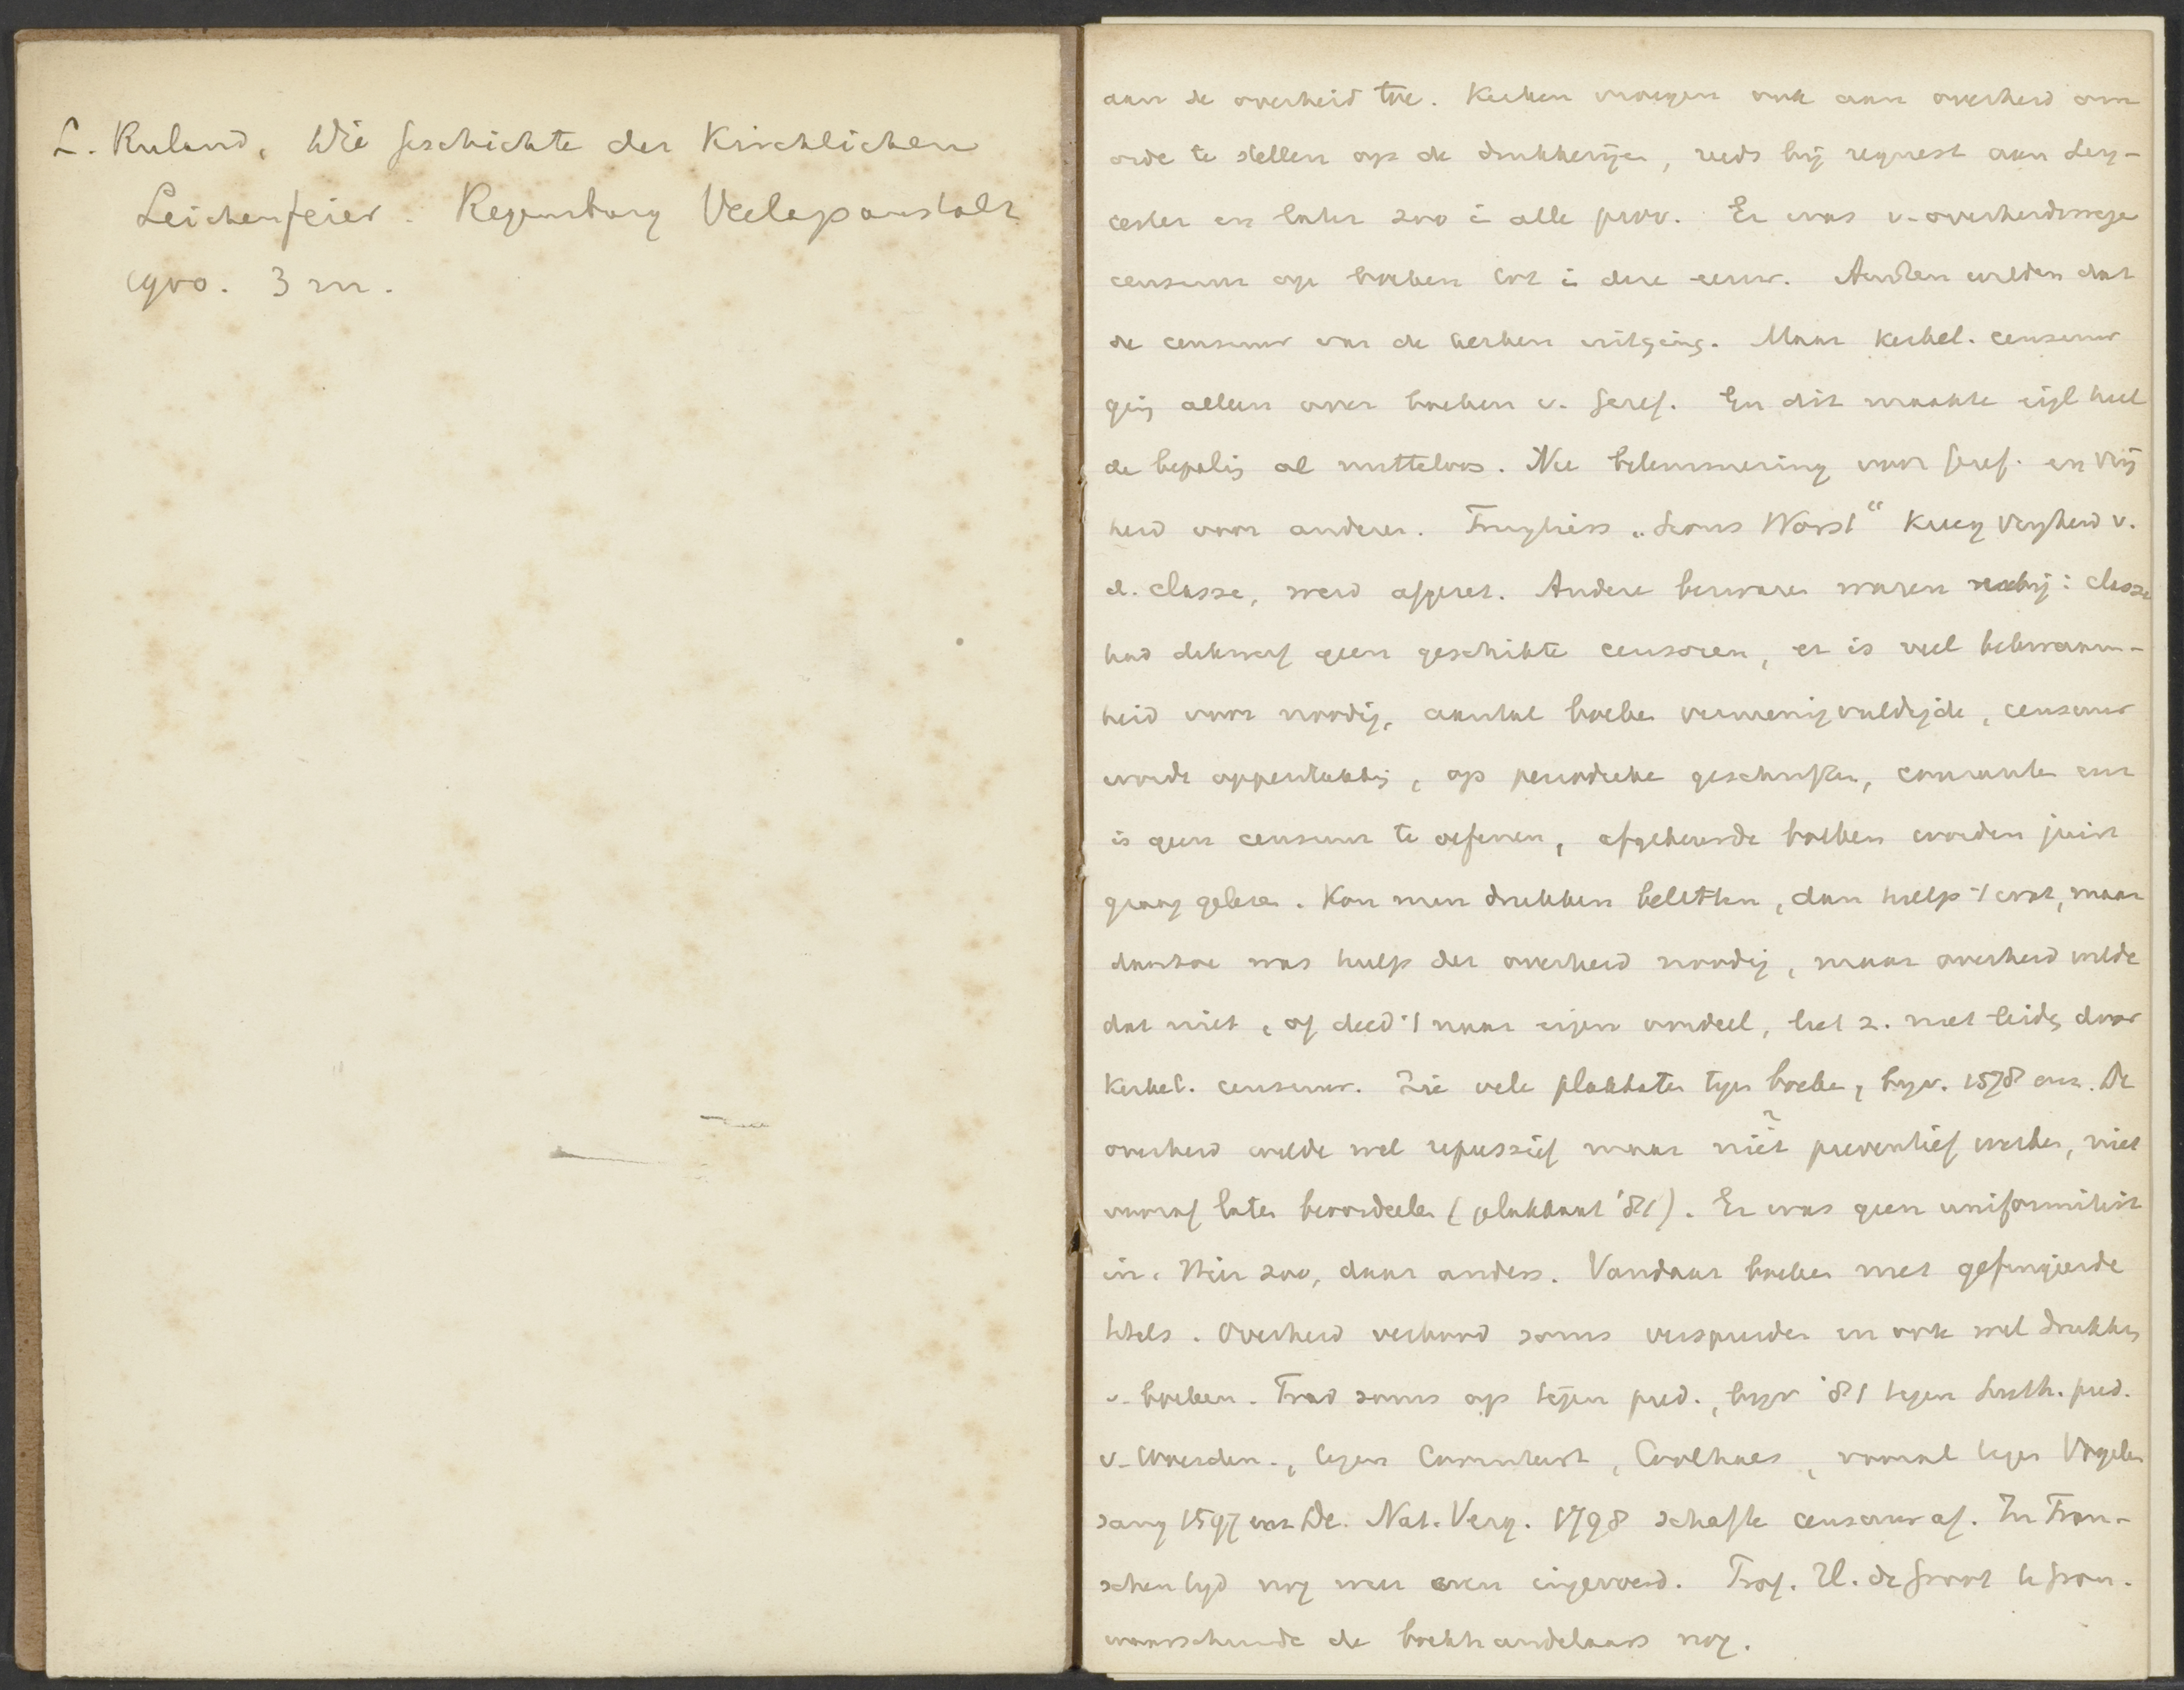 L. Ruland, Die Geschichte der Kirchlichen
Leichenfeier. Regensburg Verlagsanstalt
1900. 3 m.
aan de overheid toe. Kerken vroegen ook aan overheid om
orde te stellen op de drukkerijen, reeds bij request aan Ley-
cester en later zoo in alle prov. Er was v. overheidswege
censuur op boeken tot in deze eeuw. Anderen wilden dat
de censuur van de kerken uitging. Maar Kerkel. censuur
ging alleen over boeken v. Geref. En dit maakte eigl heel
de bepaling al nutteloos. Nl belemmering voor Geref. en vrij
heid voor anderen. "Worst" kreeg vryheid v.
d. classe, werd afgezet. Andere bezwaren waren nabij: classe
had dikwerf geen geschikte censoren, er is veel bekwaam-
heid voor noodig, aantal boeken vermenigvuldigde, censuur
wordt oppervlakkig, op periodieke geschriften, couranten enz
is geen censuur te oefenen, afgekeurde boeken worden juist
graag gelezen. Kon men drukken beletten, dan hielp 't wat, maar
daartoe was hulp der overheid noodig, maar overheid wilde
dat niet, of deed 't naar eigen oordeel, liet z. niet leiden door
Kerkel. censuur. Zie vele plakkaten tegen boeken, bijv. 1578 enz. De
overheid wilde wel repressief maar niet preventief werken, niet
vooraf laten beoordeelen (plakkaat '81). Er was geen uniformiteit
in. Hier zoo, daar anders. Vandaar boeken met gefingeerde
titels. Overheid verbood soms verspreiden en ook wel drukken
v. boeken. Trad soms op tegen pred., bijv '81 tegen Luth. pred.
v. Woerden., tegen Coornhert, Coolhaes, vooral tegen Vogelen
sang 1597 enz. De. Nat. Verg. 1798 schafte censuur af. In Fran-
schen tijd nog weer even ingevoerd. Prof. H. de Groot te Gron.
waarschuwde de boekhandelaars nog.